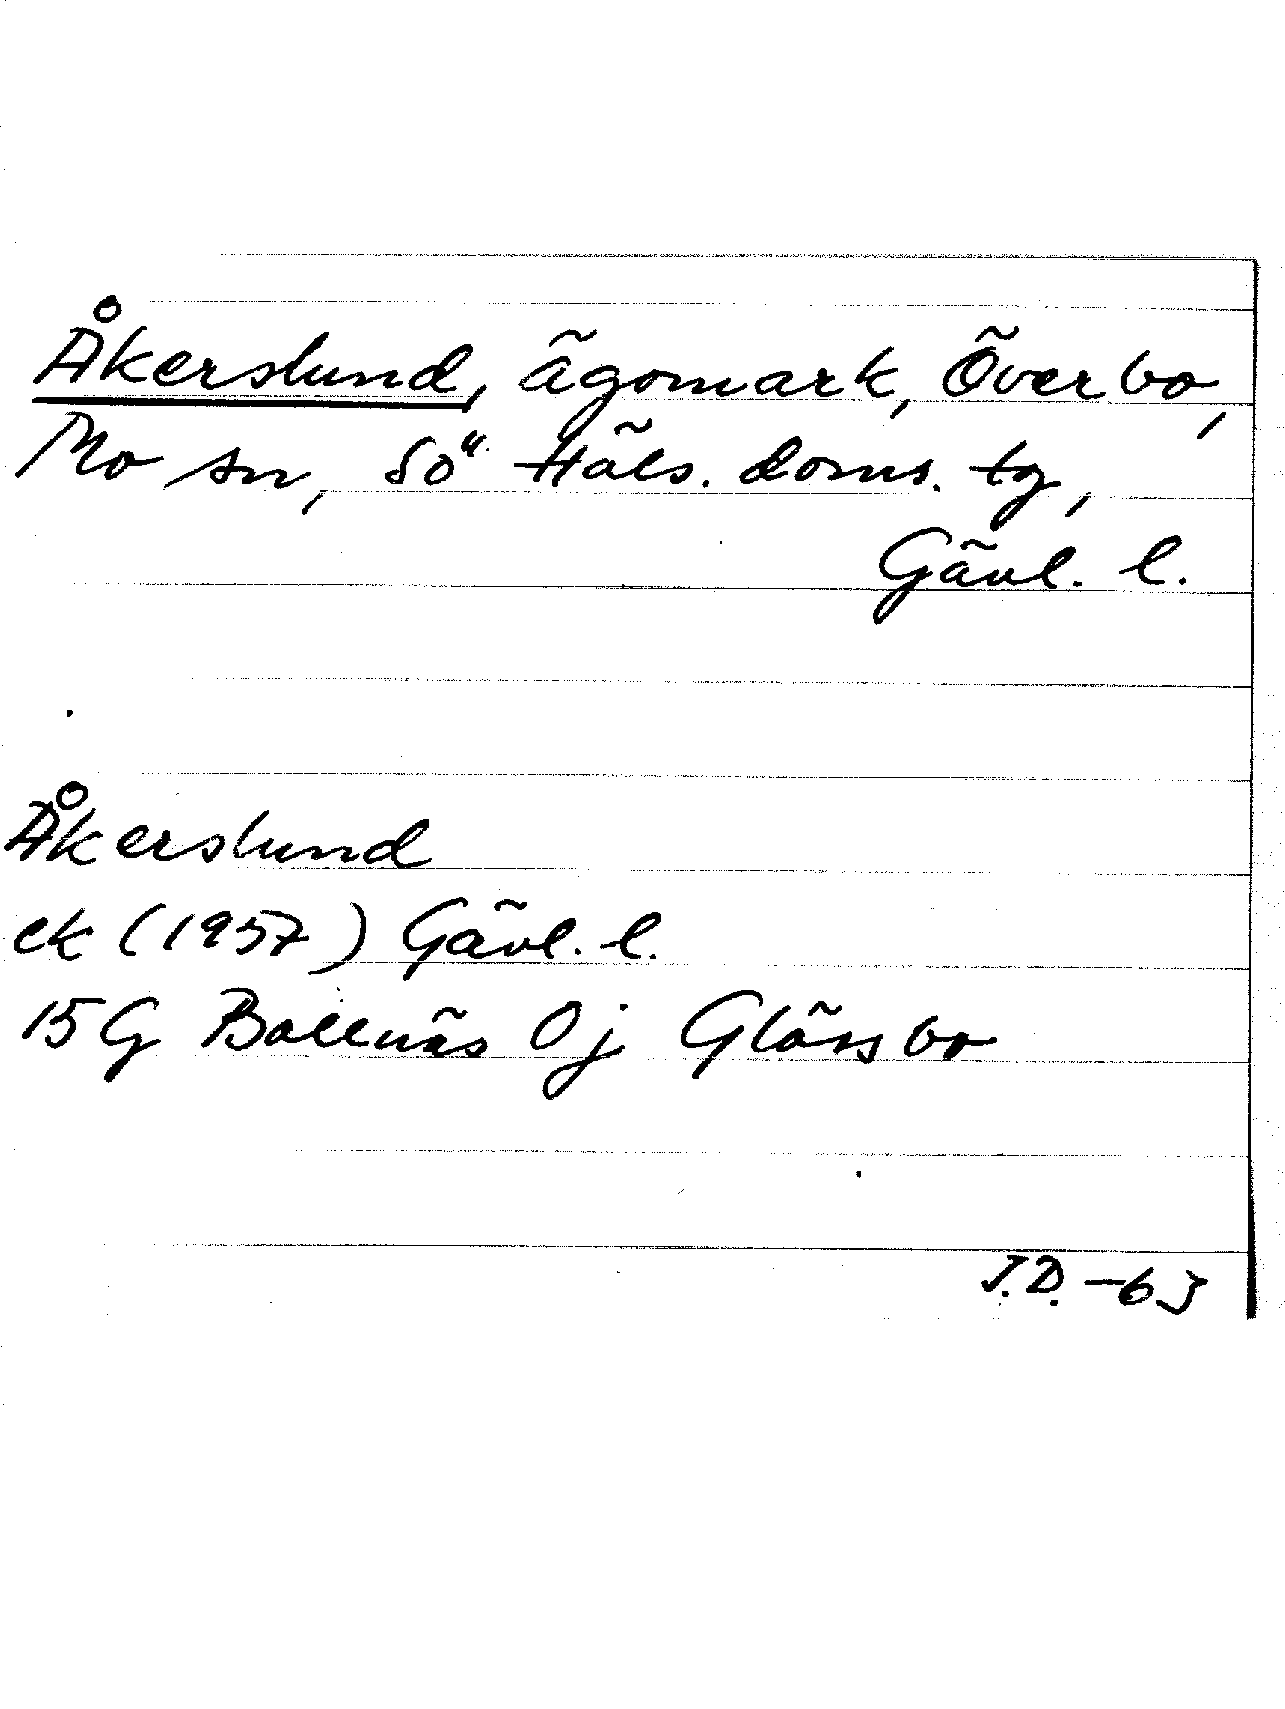 Åkerslund, ägomark, Överbo,
Mo sn, Sö Häls. doms. tg,
Gävl. l.
Åkerslund
ek (1957) Gävl. l.
15 G Bollnäs 0 j Glössbo
J.D. -63